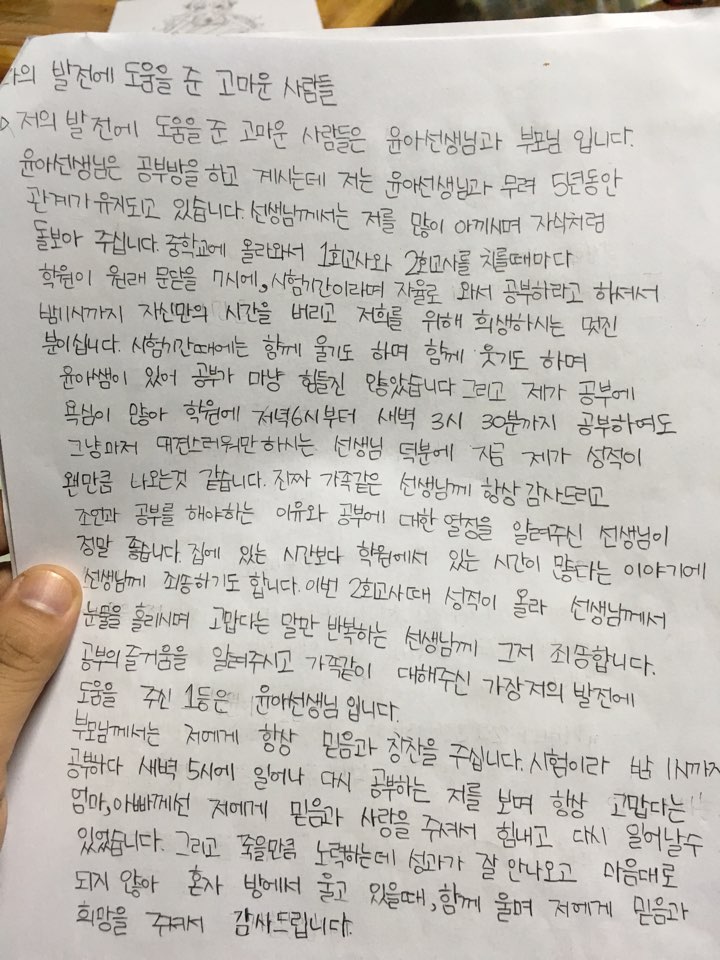 나의 발전에 도움을 준 고마운 사람들
▷ 저의 발전에 도움을 준 고마운 사람들은 윤아선생님과 부모님 입니다.
윤아선생님은 공부방을 하고 계시는데 저는 윤아선생님과 무려 5년동안
관계가 유지되고 있습니다. 선생님께서는 저를 많이 아끼시며 자식처럼
돌보아 주십니다. 중학교에 올라와서 1회고사와 2회고사를 치를때마다
학원이 원래 문닫을 7시에, 시험기간이라며 자율로 와서 공부하라고 하셔서
밤11시까지 자신만의 시간을 버리고 저희를 위해 희생하시는 멋진
분이십니다. 시험기간때에는 함께 울기도 하며 함께 웃기도 하며
윤아쌤이 있어 공부가 마냥 힘들진 않았습니다 그리고 제가 공부에
욕심이 많아 학원에 저녁6시부터 새벽 3시 30분까지 공부하여도
그냥마저 대견스러워만 하시는 선생님 덕분에 지금 제가 성적이
왠만큼 나오는것 같습니다. 진짜 가족같은 선생님께 항상 감사드리고
조언과 공부를 해야하는 이유와 공부에 대한 열정을 알려주신 선생님이
정말 좋습니다. 집에 있는 시간보다 학원에서 있는 시간이 많다는 이야기에
선생님께 죄송하기도 합니다. 이번 2회고사때 성적이 올라 선생님께서
눈물을 흘리시며 고맙다는 말만 반복하는 선생님께 그저 죄송합니다.
공부의 즐거움을 알려주시고 가족같이 대해주신 가장 저의 발전에
도움을 주신 1등은 윤아선생님 입니다.
부모님께서는 저에게 항상 믿음과 칭찬을 주십니다. 시험이라 밤 1시까지
공부하다 새벽 5시에 일어나 다시 공부하는 저를 보며 항상 고맙다는
엄마, 아빠께선 저에게 믿음과 사랑을 주셔서 힘내고 다시 일어날수
있었습니다. 그리고 죽을만큼 노력하는데 성과가 잘 안나오고 마음대로
되지 않아 혼자 방에서 울고 있을때, 함께 울며 저에게 믿음과
희망을 주셔서 감사드립니다.